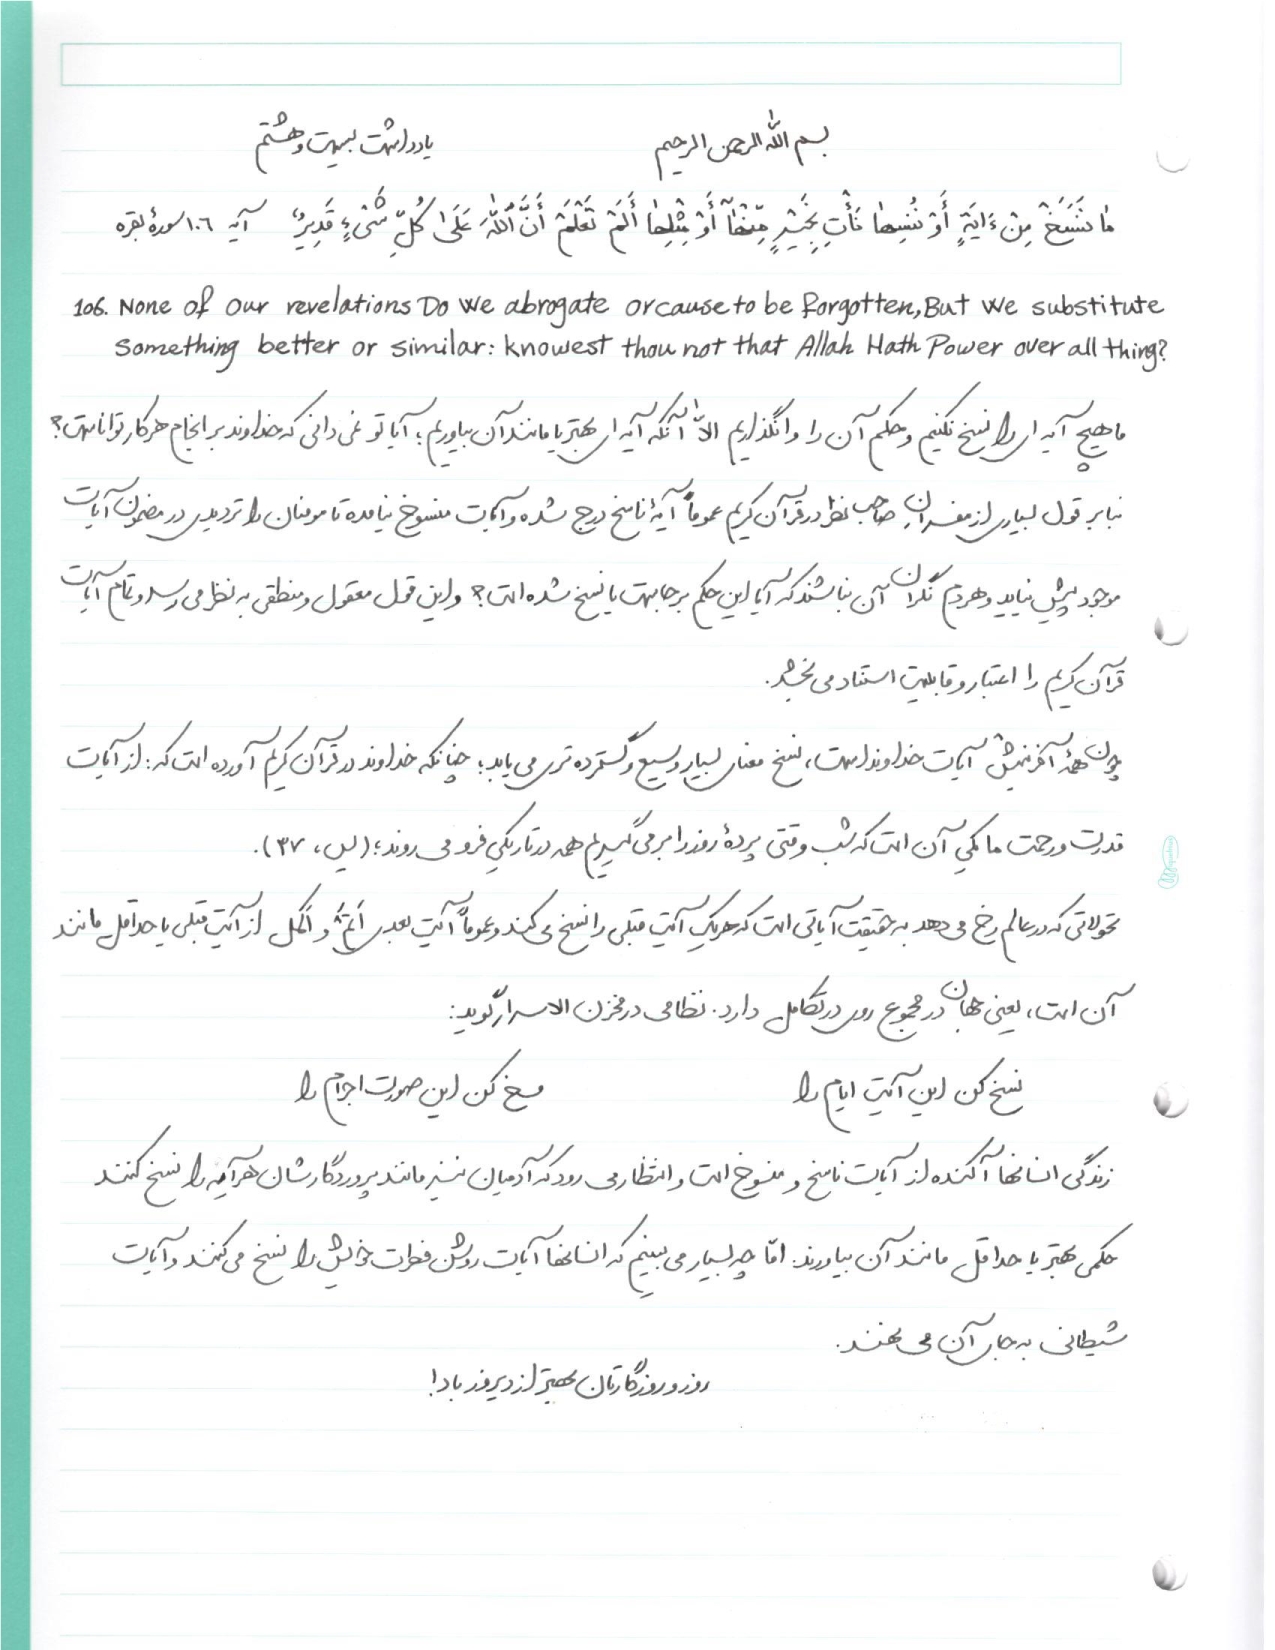 بسم الله الرحمن الرحیم یادداشت بیست و هشتم
مَا نَنسَخْ مِنْ ءَايَةٍ أَوْ نُنسِهَا نَأْتِ بِخَيْرٍ مِّنْهَآ أَوْ مِثْلِهَا أَلَمْ تَعْلَمْ أَنَّ ٱللَّهَ عَلَىٰ كُلِّ شَىْءٍ قَدِيرٌ آیه ۱۰۶ سورهٔ بقره
106. None of our revelations Do We abrogate or cause to be forgotten, But We substitute
something better or similar: knowest thou not that Allah Hath Power over all thing?
ما هیچ آیه ای را نسخ نکنیم و حکم آن را وانگذاریم الاّ آنکه آیه ای بهتر یا مانند آن بیاوریم؛ آیا تو نمی دانی که خداوند بر انجام هر کار تواناست؟
بنا بر قول بسیاری از مفسران صاحب نظر در قرآن کریم عموماً آیهٔ ناسخ درج شده و آیات منسوخ نیامده تا مومنان را تردیدی در مضمون آیات
موجود پیش نیاید و هردم نگران آن نباشند که آیا این حکم برجاست یا نسخ شده است؟ و این قول معقول و منطقی به نظر می رسد و تمام آیات
قرآن کریم را اعتبار و قابلیت استناد می بخشد.
چون همهٔ آفرینش آیات خداوند است، نسخ معنای بسیار وسیع و گسترده تری می یابد؛ چنانکه خداوند در قرآن کریم آورده است که: از آیات
قدرت و رحمت ما یکی آن است که شب وقتی پردهٔ روز را برمی گیریم همه در تاریکی فرو می روند؛ (یس، ۳۷).
تحولاتی که در عالم رخ می دهد به حقیقت آیاتی است که هریک آیت قبلی را نسخ می کند و عموماً آیت بعدی اَتمّ و اَکمل از آیت قبلی یا حداقل مانند
آن است، یعنی جهان در مجموع روی در تکامل دارد. نظامی در مخزن الاسرار گوید:
نسخ کن این آیت ایام را مسخ کن این صورت اجرام را
زندگی انسانها آکنده از آیات ناسخ و منسوخ است و انتظار می رود که آدمیان نیز مانند پروردگارشان هر آیه را نسخ کنند
حکمی بهتر یا حداقل مانند آن بیاورند. امّا چه بسیار می بینیم که انسانها آیات روشن فطرت خویش را نسخ می کنند و آیات
شیطانی به جای آن می نهند.
روز و روزگارتان بهتر از دیروز باد!